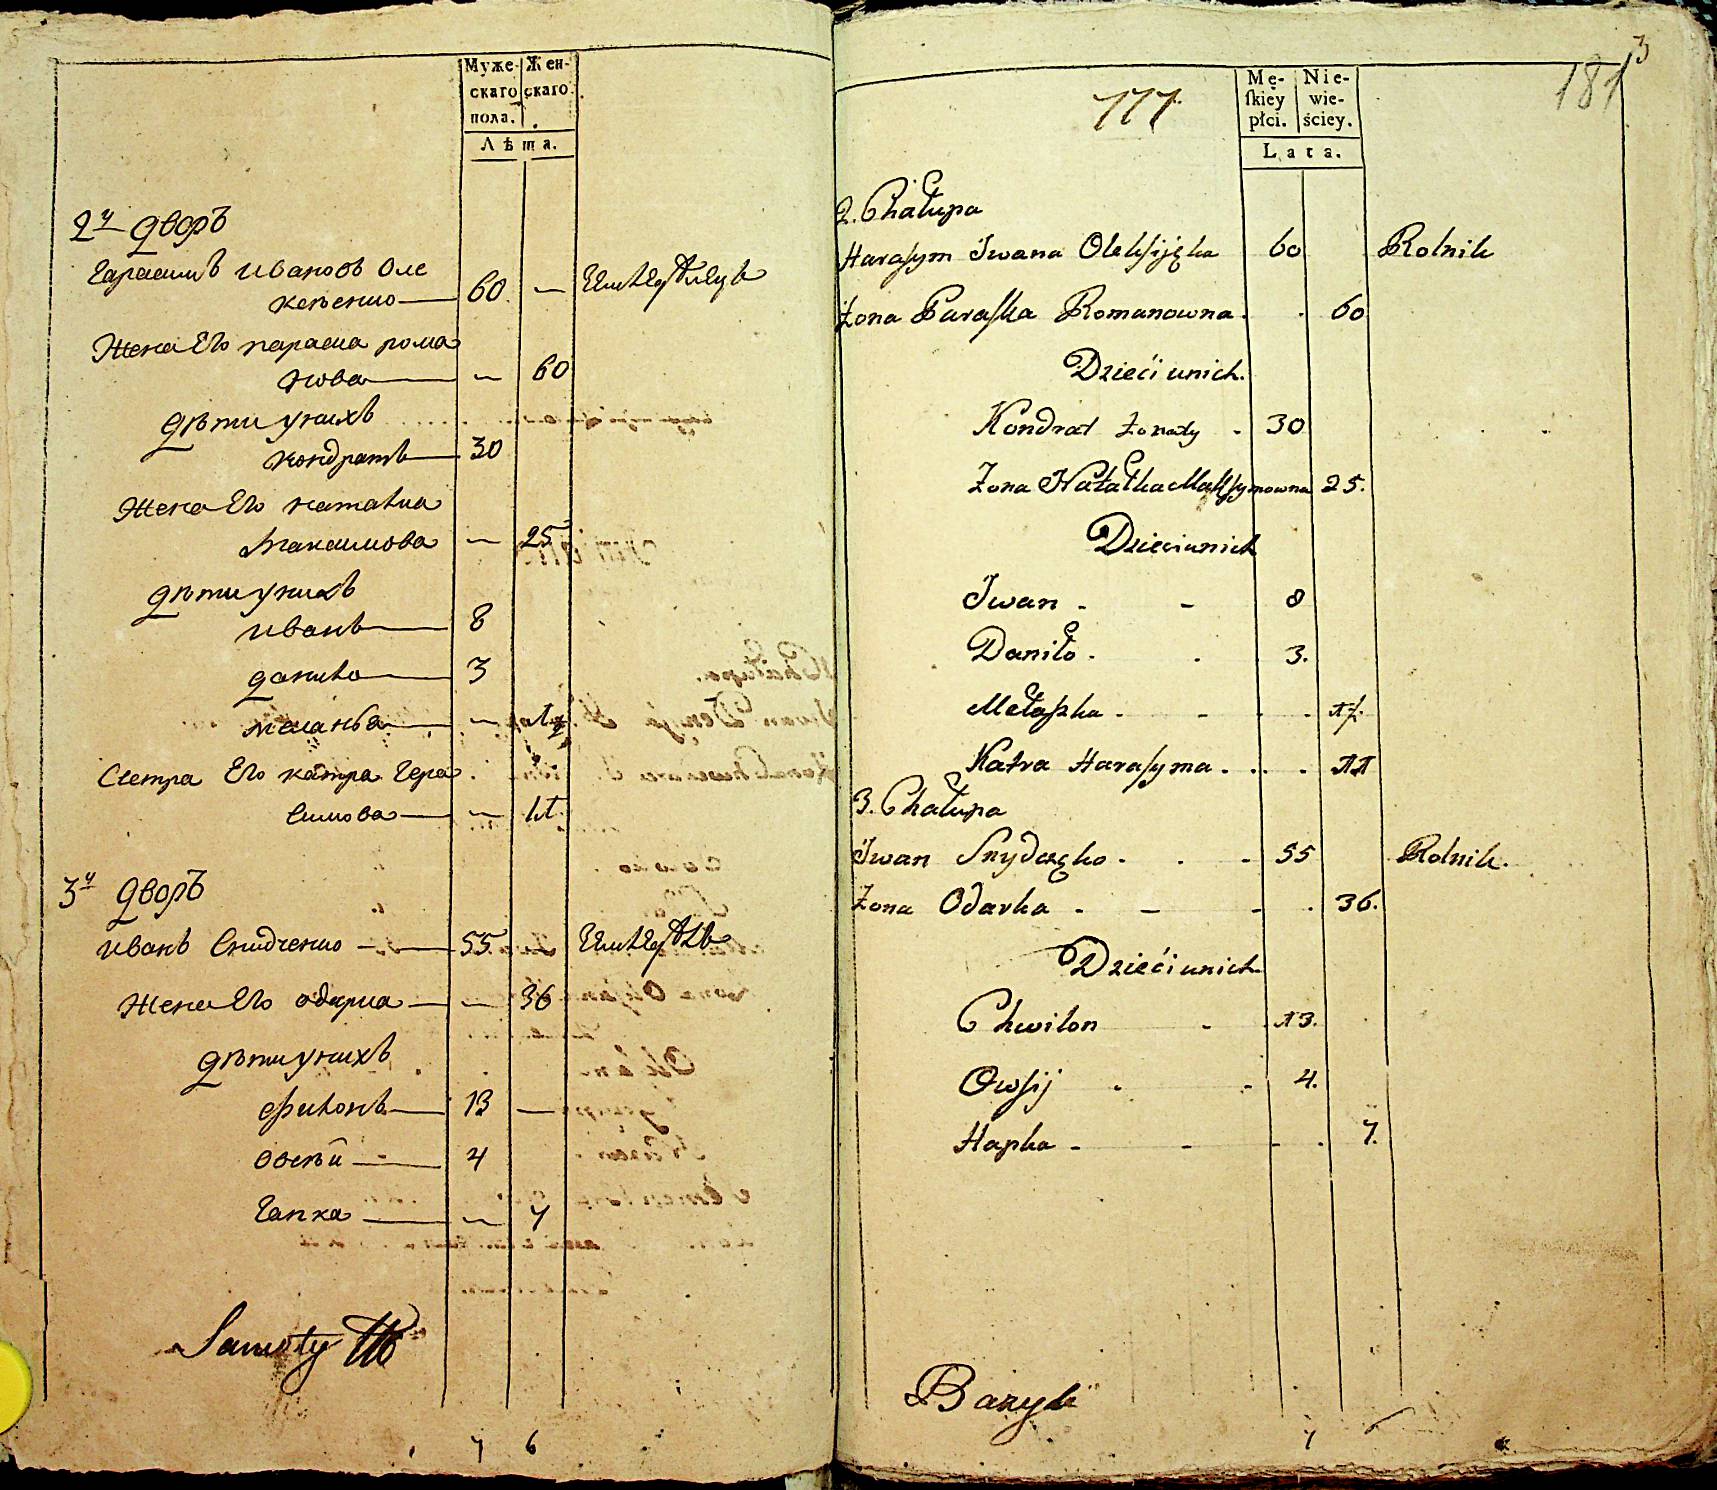 Муже- Жен-
скаго скаго
пола.
Лѣта.
2й дворъ
Гарасимъ Ивановъ Оле
ксѣенко 60 —
Жена Его параска рома
нова — 60
дѣти у нихъ
кондратъ 30
Жена Его наталка
Максимова — 25
дѣти у нихъ
иванъ 8
данило 3
меланья —
Сестра Его катра Гера
симова — 11
3й дворъ
иванъ Снидченко 55 —
Жена Его одарка — 36
дѣти у нихъ
филонъ 13 —
овсѣй 4
Гапка — 7
7 6
3
181
777
Mę- Nie-
ſkiey wie-
płci. ściey.
Lata.
2. Chałupa
Haraſym Iwana Olekſijęka 60 Rolnik
Żona Paraſka Romanowna 60
Dzieći unich.
Kondrat żonaty 30
Żona Natałka Makſymowna 25.
Dzieci unich
Iwan 8
Daniło 3.
Mełaſzka
Katra Haraſyma 11
3. Chałupa
Iwan Snydczęko 55 Rolnik.
Żona Odarka 36.
Dzieći unich
Chwilon 13.
Owſij 4.
Hapka 7.
7